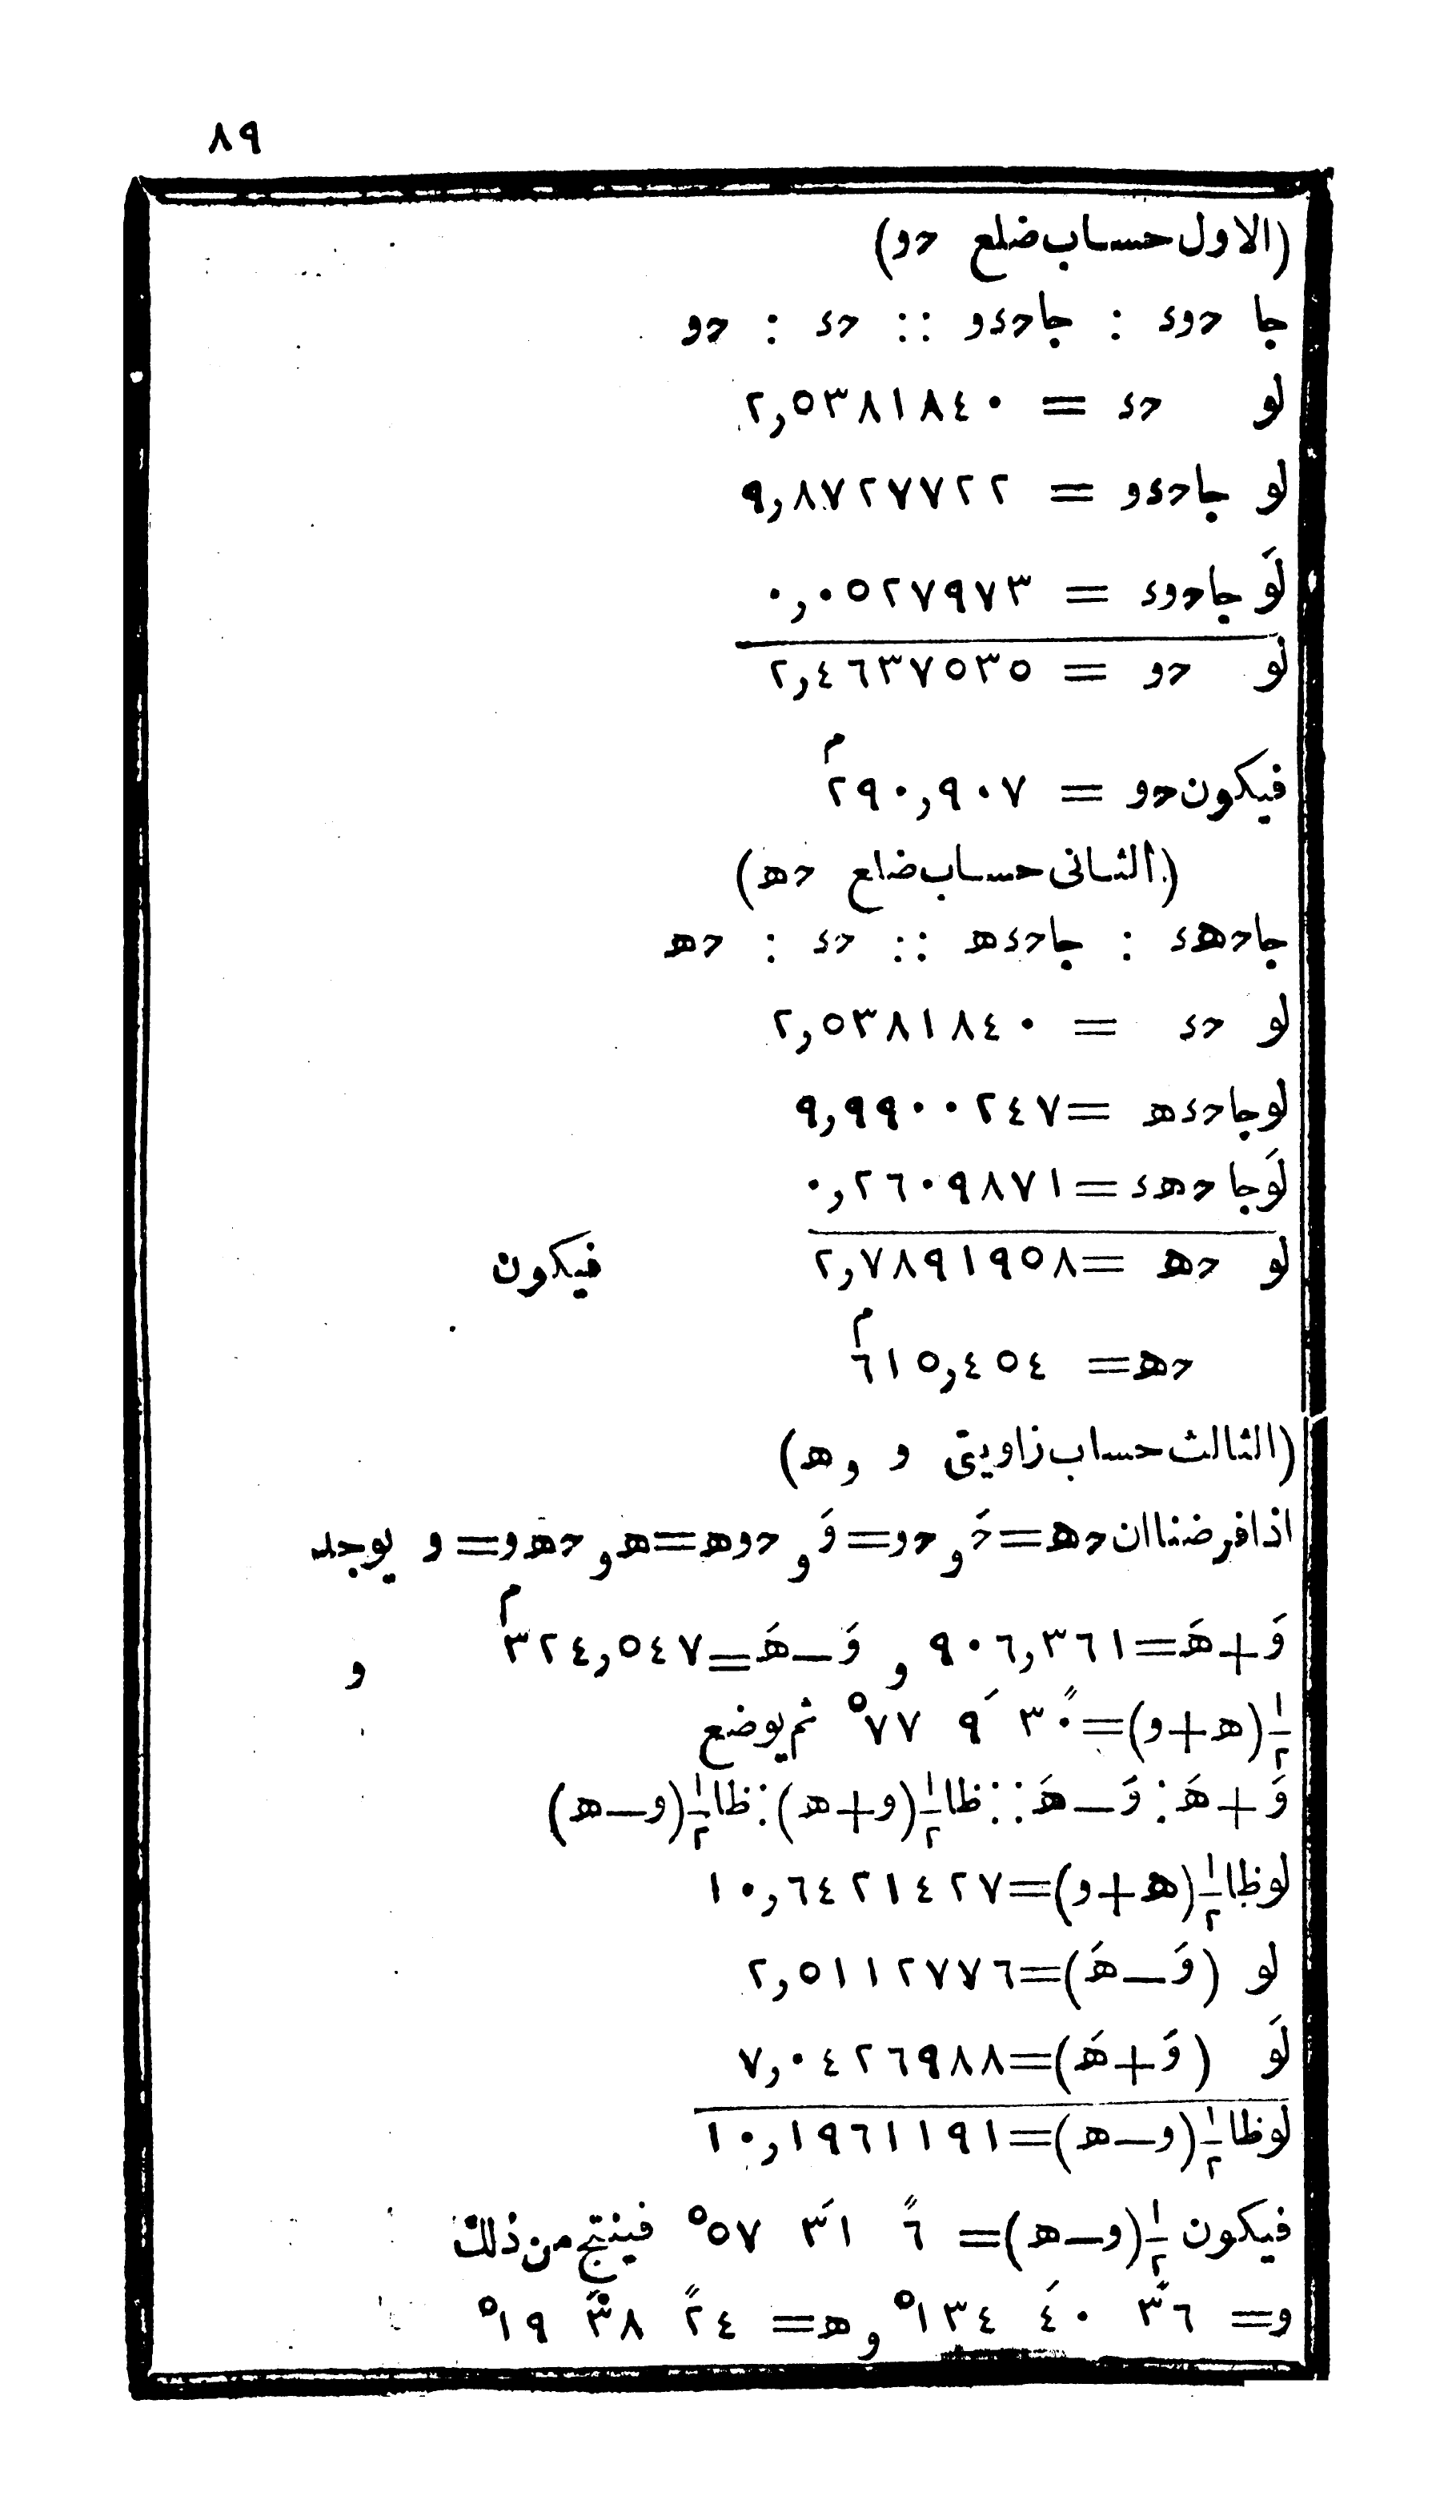 ٨٩
(الاول حساب ضلع حو)
جا حوء : جاحءو :: حء : حو
لو حء = ٢,٥٣٨١٨٤٠
لو جاحءو = ٩,٨٧٢٧٧٢٢
لَو جاحوء = ٠,٠٥٢٧٩٧٣
لو حو = ٢,٤٦٣٧٥٣٥
فيكون حو = ٢٩٠,٩٠٧ م
(الثانى حساب ضلع حهـ)
جاحهـء : جاحءهـ :: حء : حهـ
لو حء = ٢,٥٣٨١٨٤٠
لوجاحءهـ = ٩,٩٩٠٠٢٤٧
لَوجاحهـء = ٠,٢٦٠٩٨٧١
لو حهـ = ٢,٧٨٩١٩٥٨ فيكون
حهـ = ٦١٥,٤٥٤ م
(الثالث حساب زاويتى و و هـ)
اذا فرضنا ان حهـ = حَ و حو = وَ و حوهـ = هـ و حهـو = و يوجد
وَ + هـَ = ٩٠٦,٣٦١ و وَ — هـَ = ٣٢٤,٥٤٧ م و
١/٢ (هـ + و) = ٣٠ً ٩َ ٧٧° ثم يوضع
وَ + هـَ : وَ — هـَ :: ظا ١/٢ (و + هـ) : ظا ١/٢ (و — هـ)
لوظا ١/٢ (هـ + و) = ١٠,٦٤٢١٤٢٧
لو (وَ — هـَ) = ٢,٥١١٢٧٧٦
لَو (وَ + هـَ) = ٧,٠٤٢٦٩٨٨
لوظا ١/٢ (و — هـ) = ١٠,١٩٦١١٩١
فيكون ١/٢ (و — هـ) = ٦ً ٣١َ ٥٧° فينتج من ذلك
و = ٣٦ً ٤٠َ ١٣٤° و هـ = ٢٤ً ٣٨َ ١٩°